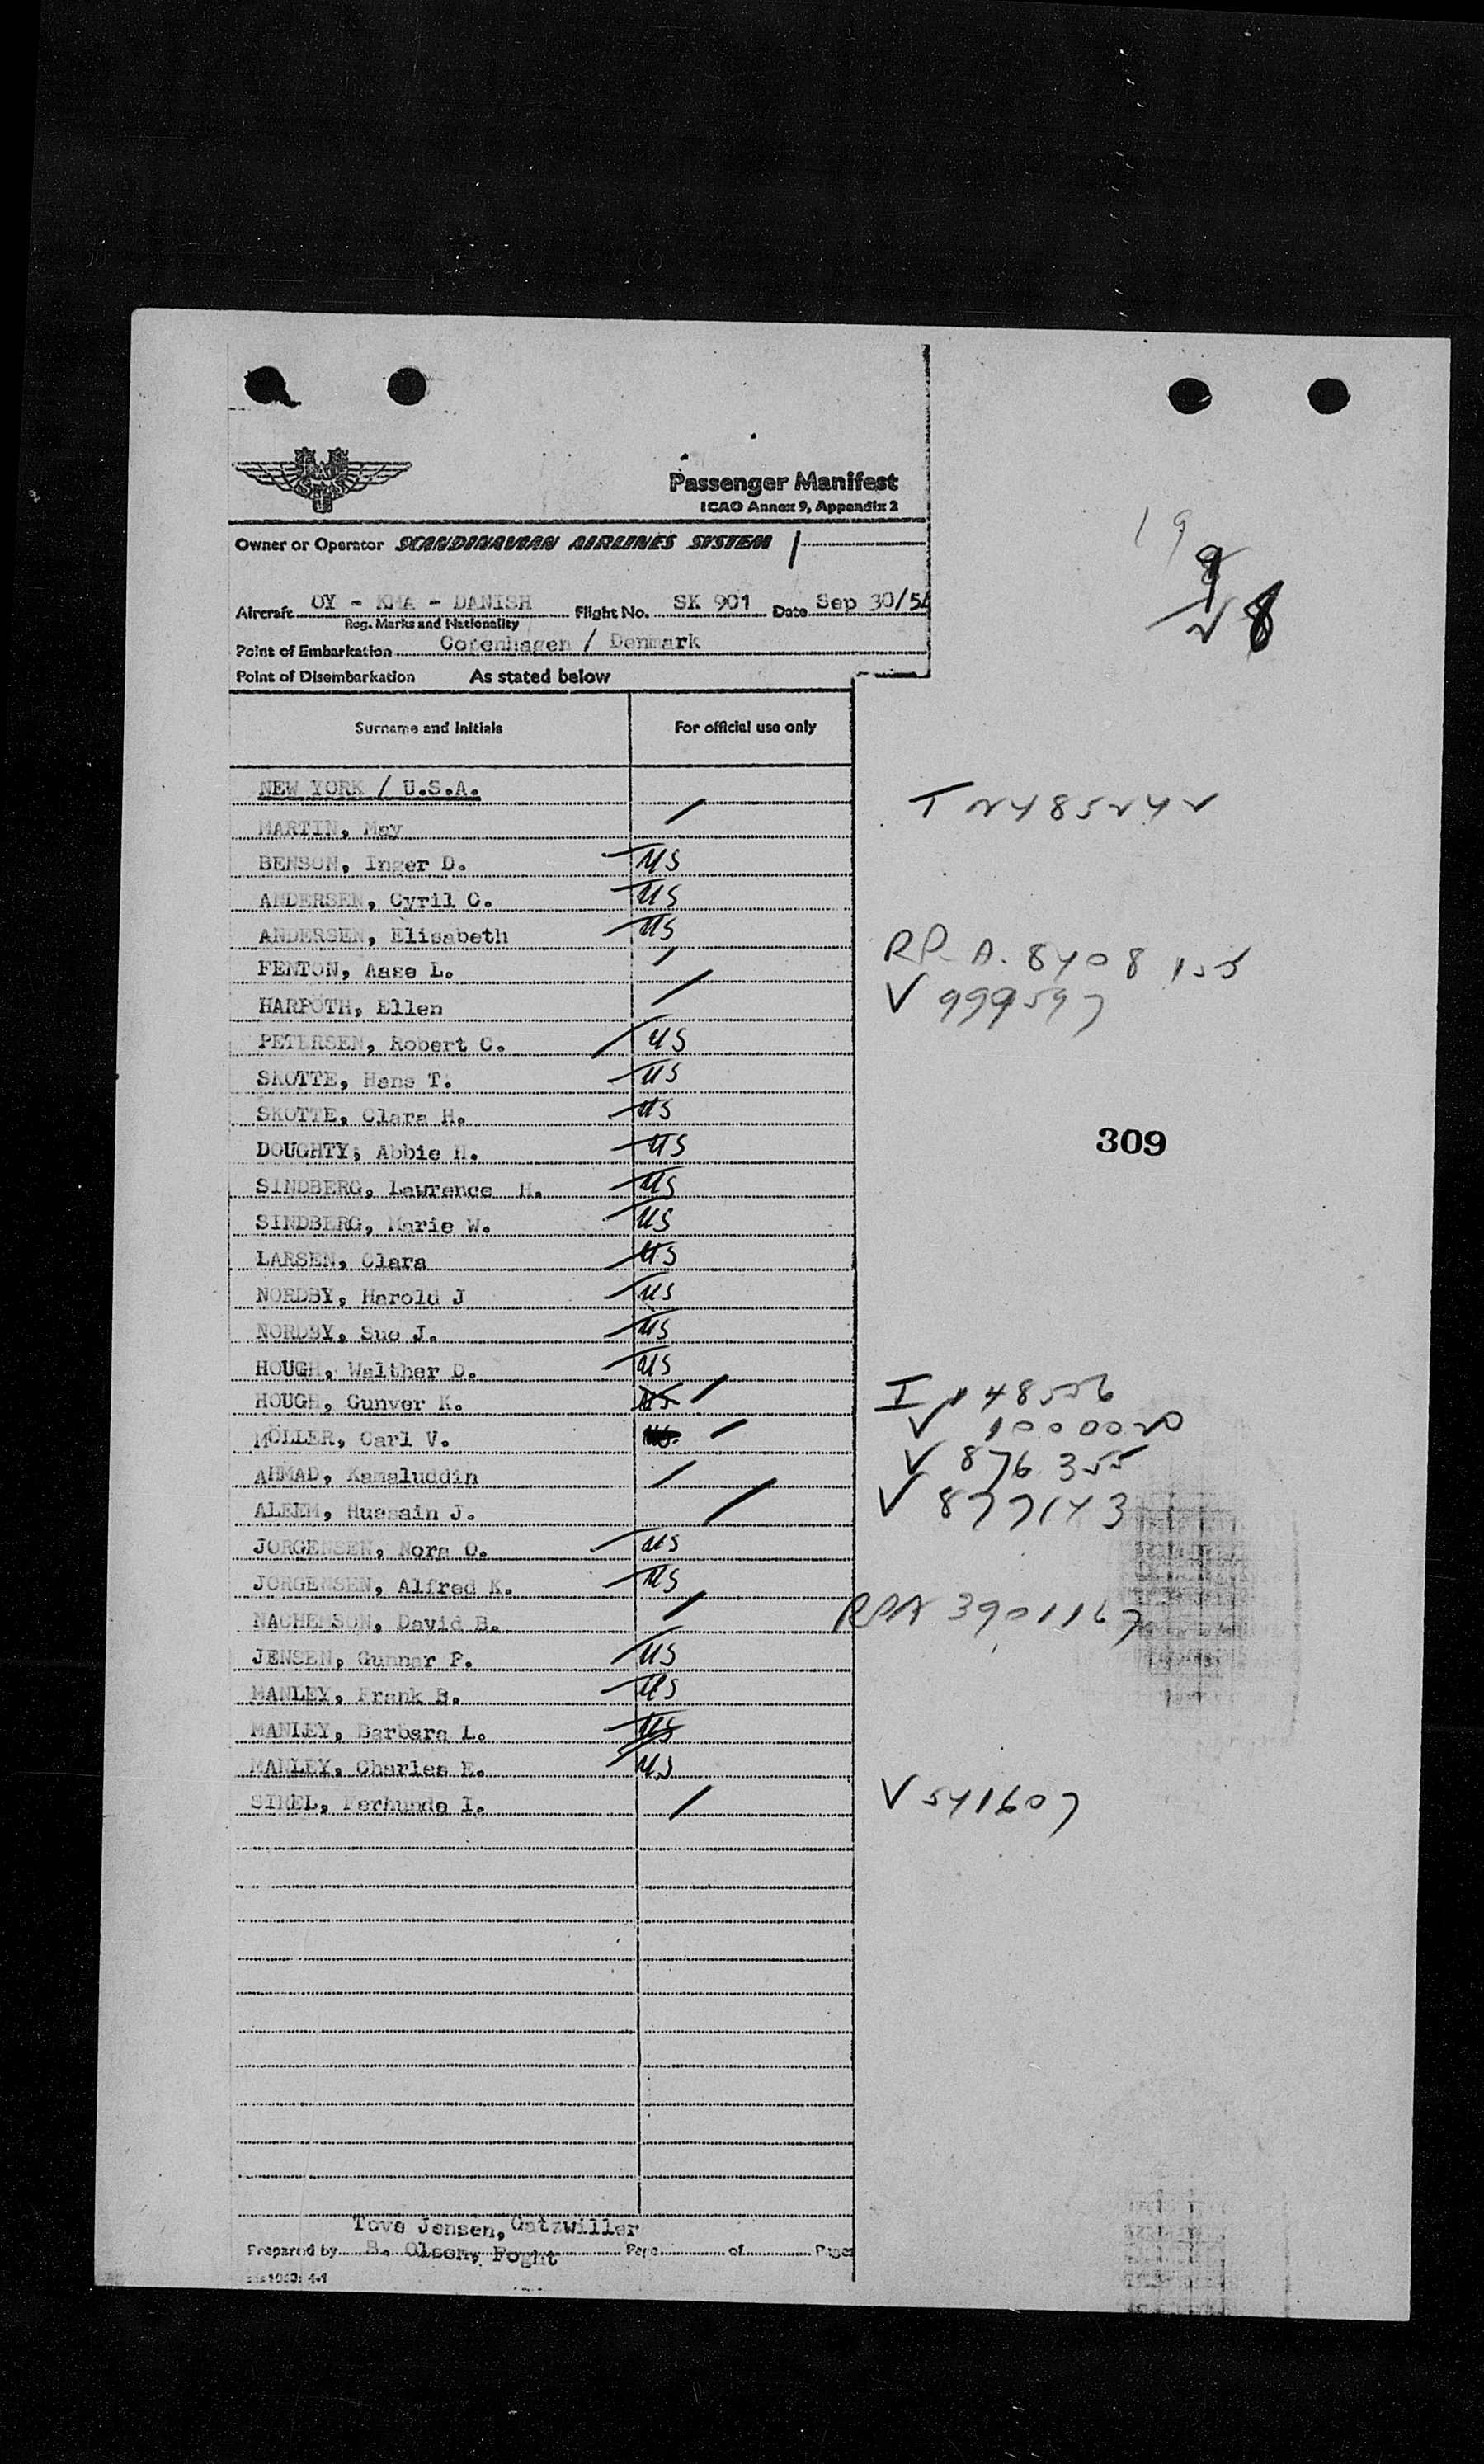 Passenger Manifest
ICAO Annex 9, Appendix 2
Owner or Operator SCANDINAVIAN AIRLINES SYSTEM
19
8
Aircraft OY - KMA - DANISH Flight No. SK 901 Date Sep 30/54
Reg. Marks and Nationality
Point of Embarkation Copenhagen / Denmark
Point of Disembarkation As stated below
Surname and initials For official use only
NEW YORK / U.S.A.
MARTIN, May T 2485242
BENSON, Inger D. US
ANDERSEN, Cyril C. US
ANDERSEN, Elisabeth US
FENTON, Aase L. RP A. 8408 155
HARPOTH, Ellen V 999597
PETERSEN, Robert C. US
SKOTTE, Hans T. US
SKOTTE, Clara H. US
DOUGHTY, Abbie H. US
309
SINDBERG, Lawrence H. US
SINDBERG, Marie W. US
LARSEN, Clara US
NORDBY, Harold J US
NORDBY, Sue J. US
HOUGH, Walther D. US
HOUGH, Gunver K. US I 148556
MÖLLER, Carl V. V 1000020
AHMAD, Kamaluddin V 876355
ALEEM, Hussain J. V 877143
JORGENSEN, Nora O. US
JORGENSEN, Alfred K. US
NACHELSON, David B. RPA 3901167
JENSEN, Gunnar P. US
MANLEY, Frank B. US
MANLEY, Barbara L. US
MANLEY, Charles E. US
SIREL, Ferhunde I. V 541607
Tove Jensen, Gatzwiller
Prepared by B. Olsen, Foght Page of Pages